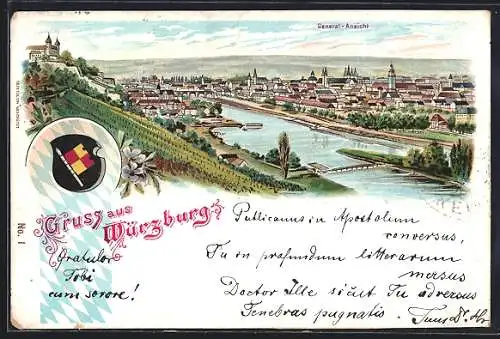 General-Ansicht
No. 1
Gruss aus
Würzburg
Gratulor
Tobi
cum sorore!
Publicanus in Apostolum
conversus,
Tu in profundum litterarum
mersus
Doctor Ille sicut Tu adversus
Tenebras pugnatis.
Tuus